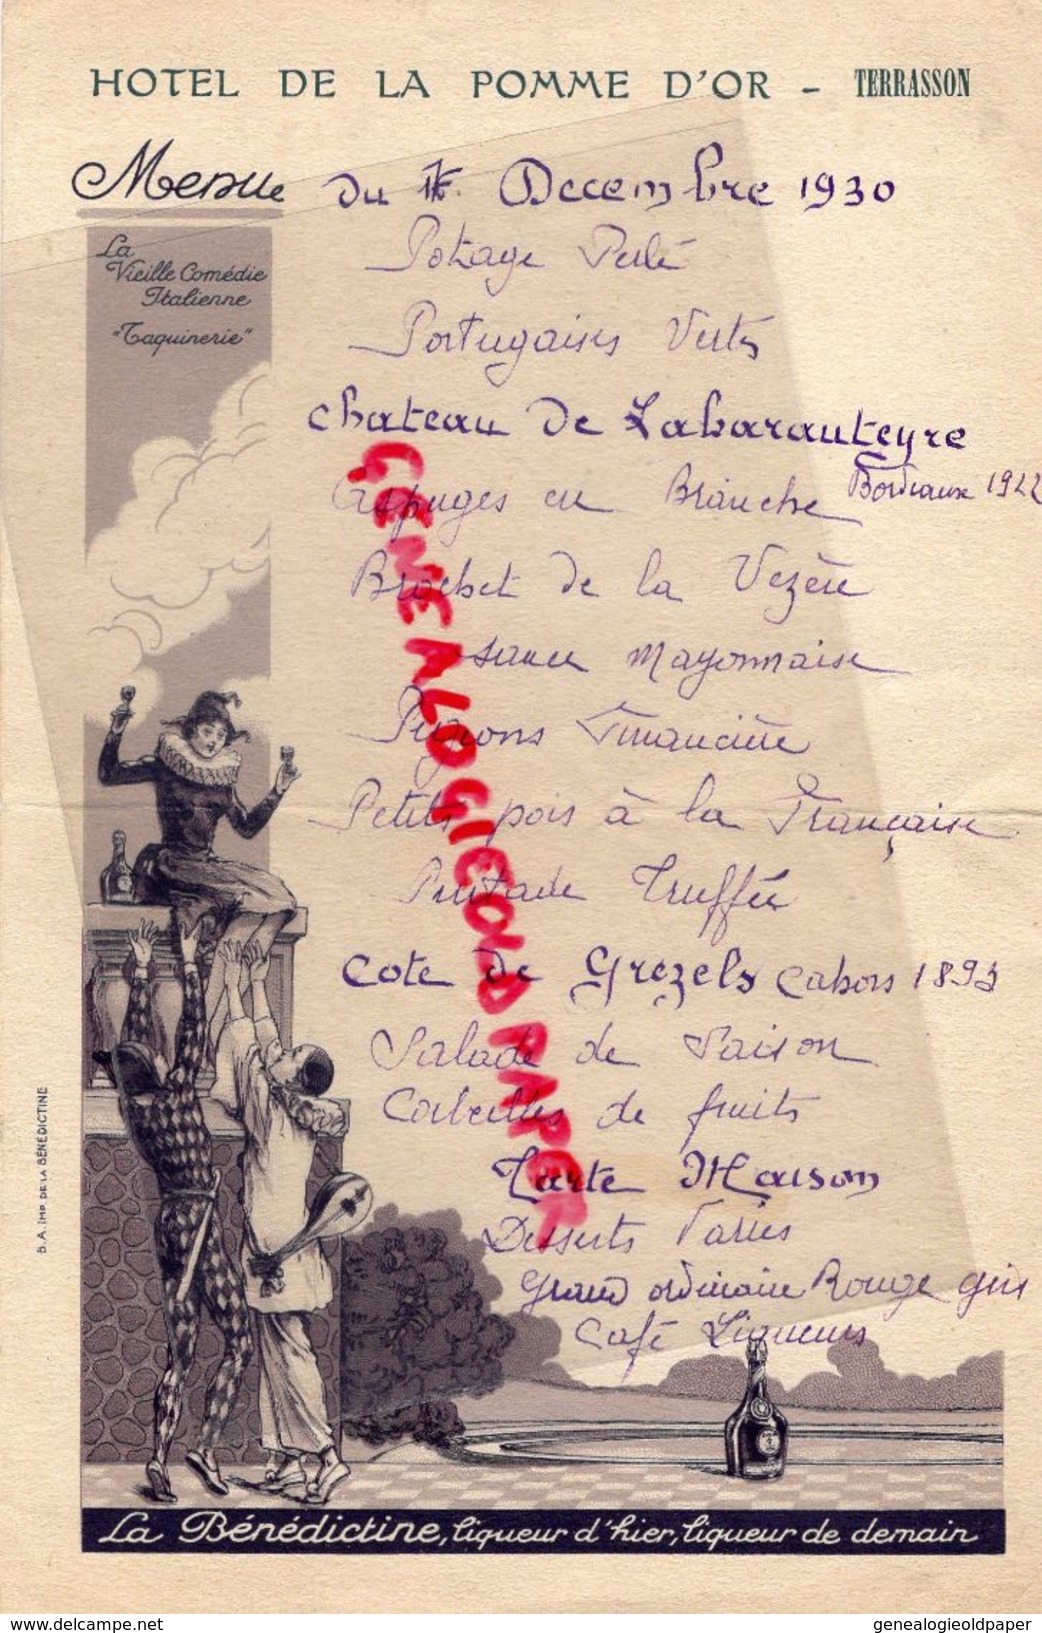 HOTEL DE LA POMME D'OR - TERRASSON
Menu du Decembre 1930
La
Vieille Comédie
Italienne
"Taquinerie"
Potage Perlé
Portugaises Vertes
Chateau de Labarauteyre
Bordeaux 1922
Asperges en Branche
Brochet de la Vezère
sauce Mayonnaise
Pigeons Financière
Petits pois à la Française
Pintade Truffée
Cote de Grezels Cahors 1893
Salade de Saison
Corbeilles de fruits
Tarte Maison
Desserts Variés
Grand ordinaire Rouge gris
Café Liqueurs
GENEALOGIEOLDPAPER
B.A. IMP. DE LA BÉNÉDICTINE
La Bénédictine, liqueur d'hier, liqueur de demain
www.delcampe.net
genealogieoldpaper